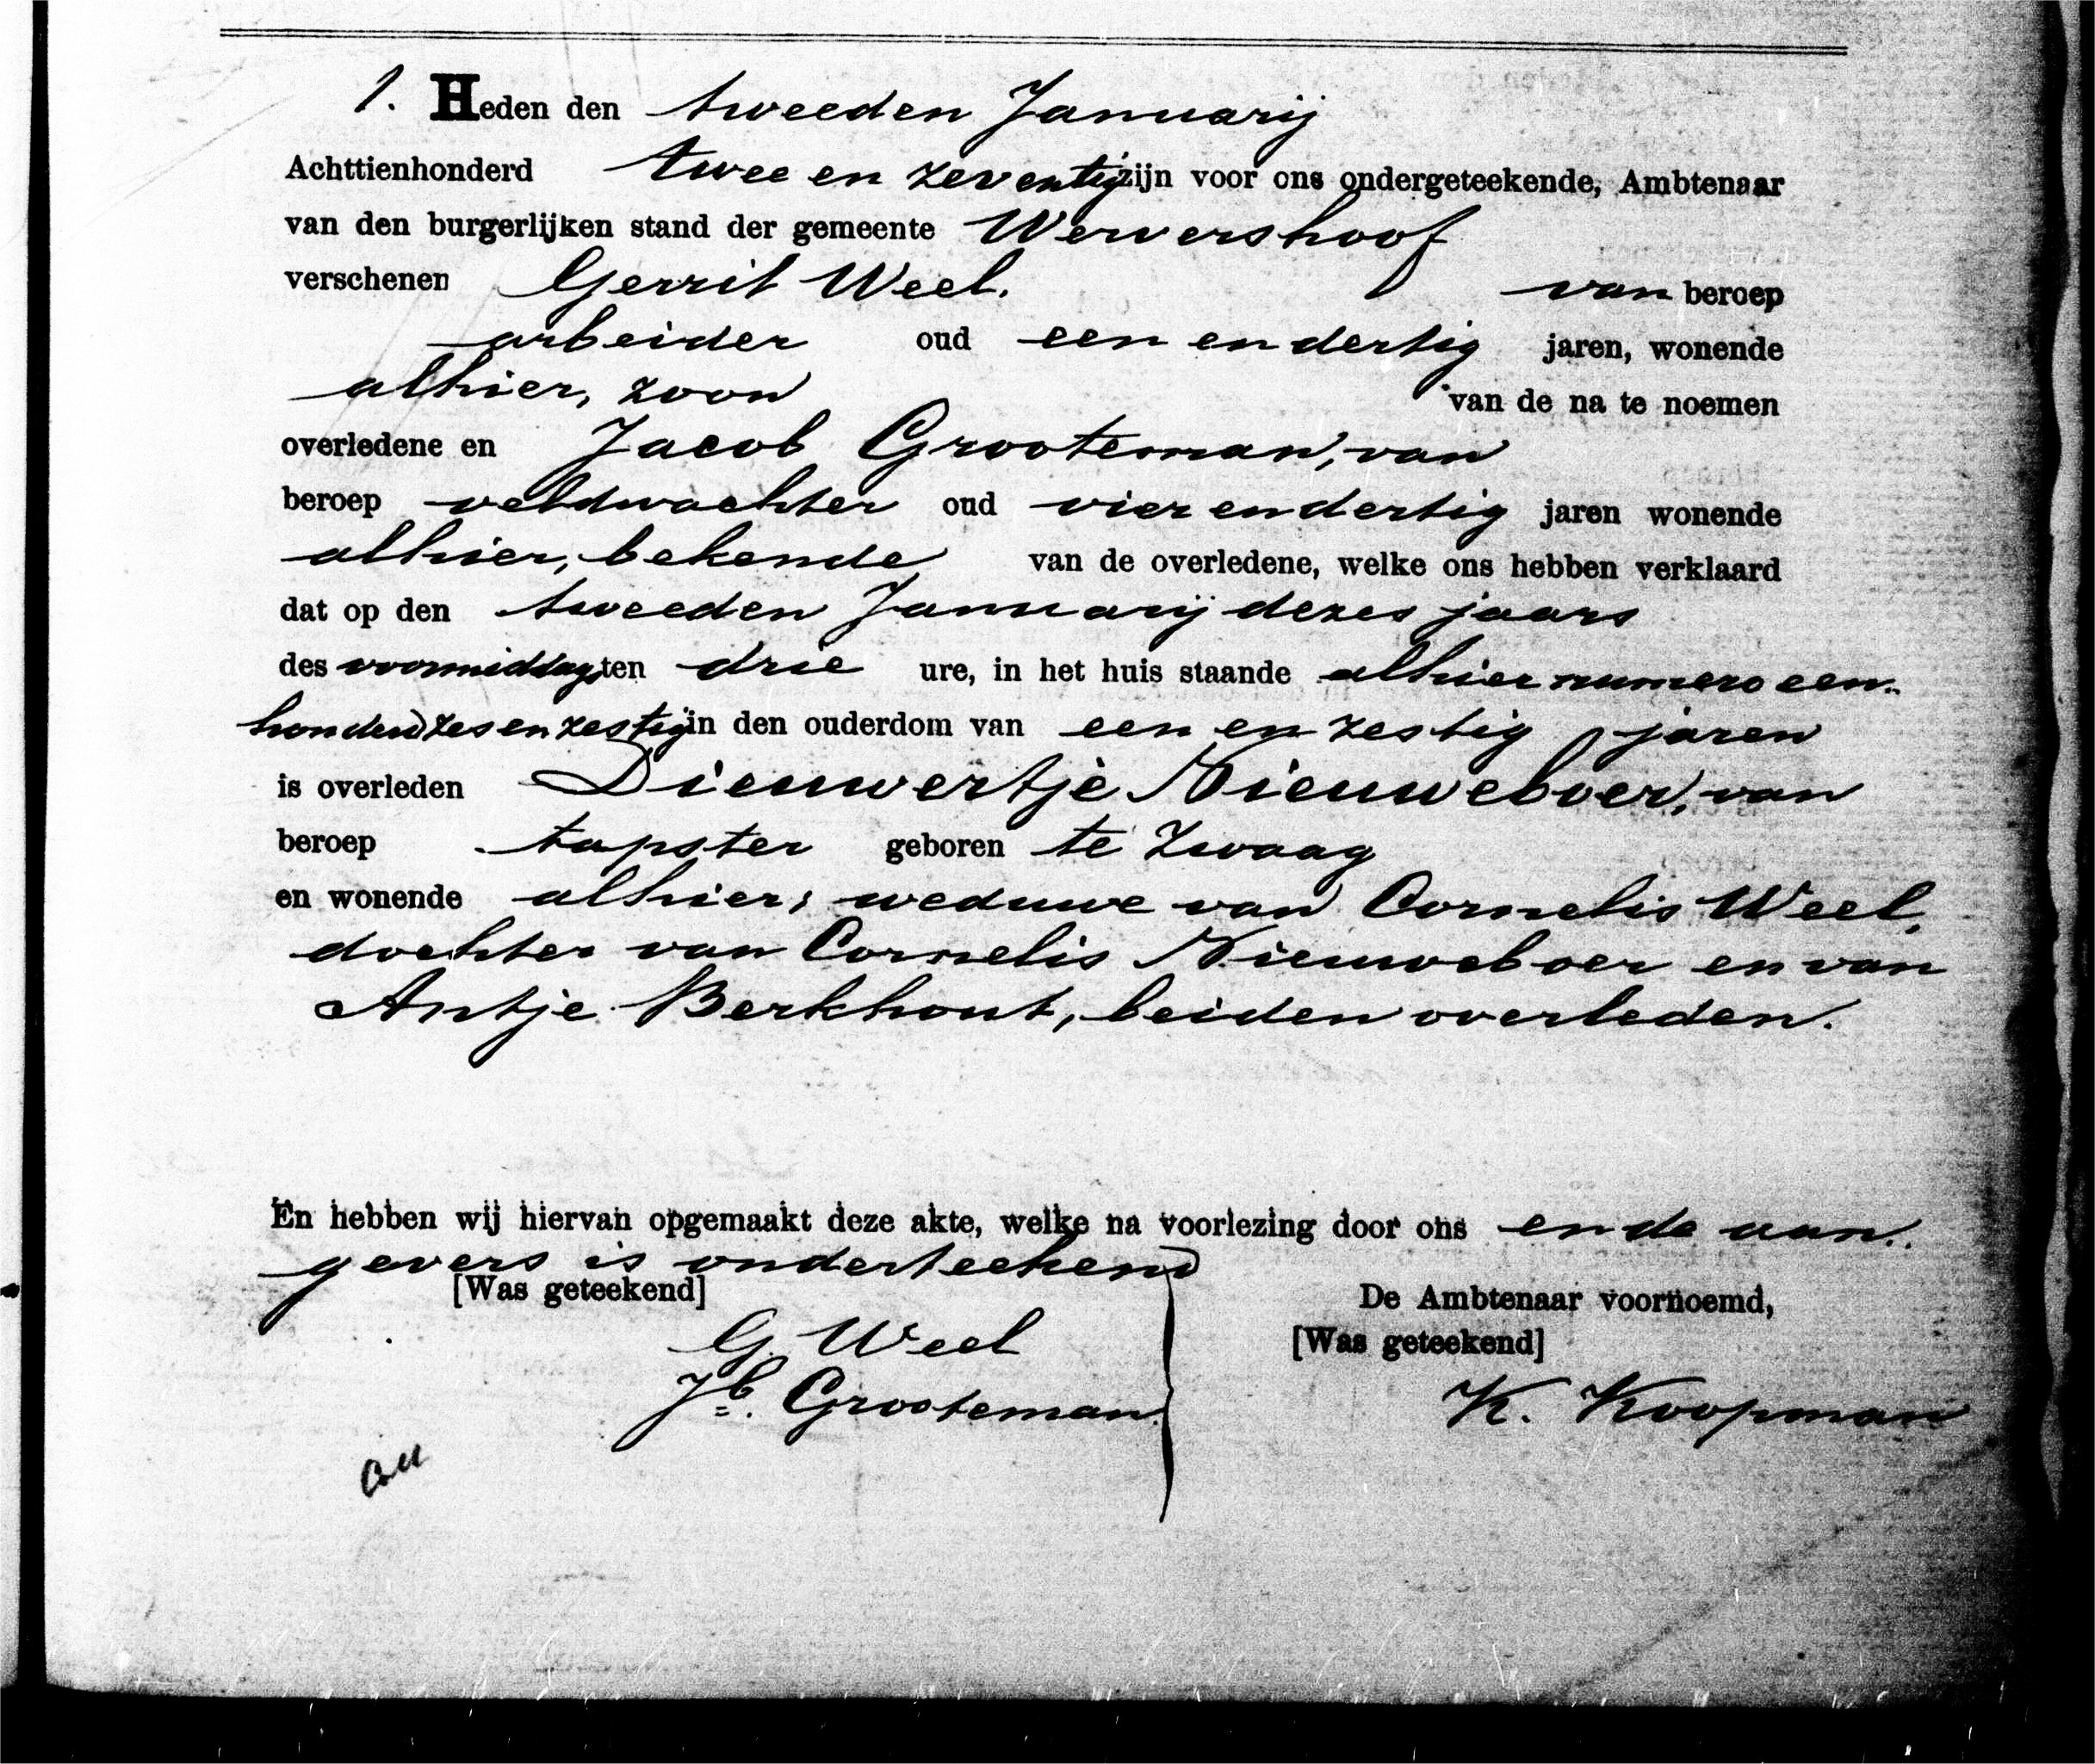 1. Heden den tweeden Januarij
Achttienhonderd twee en zeventig zijn voor ons ondergeteekende, Ambtenaar
van den burgerlijken stand der gemeente Wervershoof
verschenen Gerrit Weel. van beroep
arbeider oud een en dertig jaren, wonende
alhier, zoon van de na te noemen
overledene en Jacob Grooteman, van
beroep veldwachter oud vier en dertig jaren wonende
alhier, bekende van de overledene, welke ons hebben verklaard
dat op den tweeden Januarij dezes jaars
des voormiddags ten drie ure, in het huis staande alhier numero een-
honderd zes en zestig in den ouderdom van een en zestig jaren
is overleden Dieuwertje Nieuweboer, van
beroep tapster geboren te Zwaag
en wonende alhier; weduwe van Cornelis Weel,
dochter van Cornelis Nieuweboer en van
Antje Berkhout, beiden overleden.
En hebben wij hiervan opgemaakt deze akte, welke na voorlezing door ons en de aan-
gevers is onderteekend
[Was geteekend] De Ambtenaar voornoemd,
G. Weel [Was geteekend]
Jb. Grooteman. K. Koopman